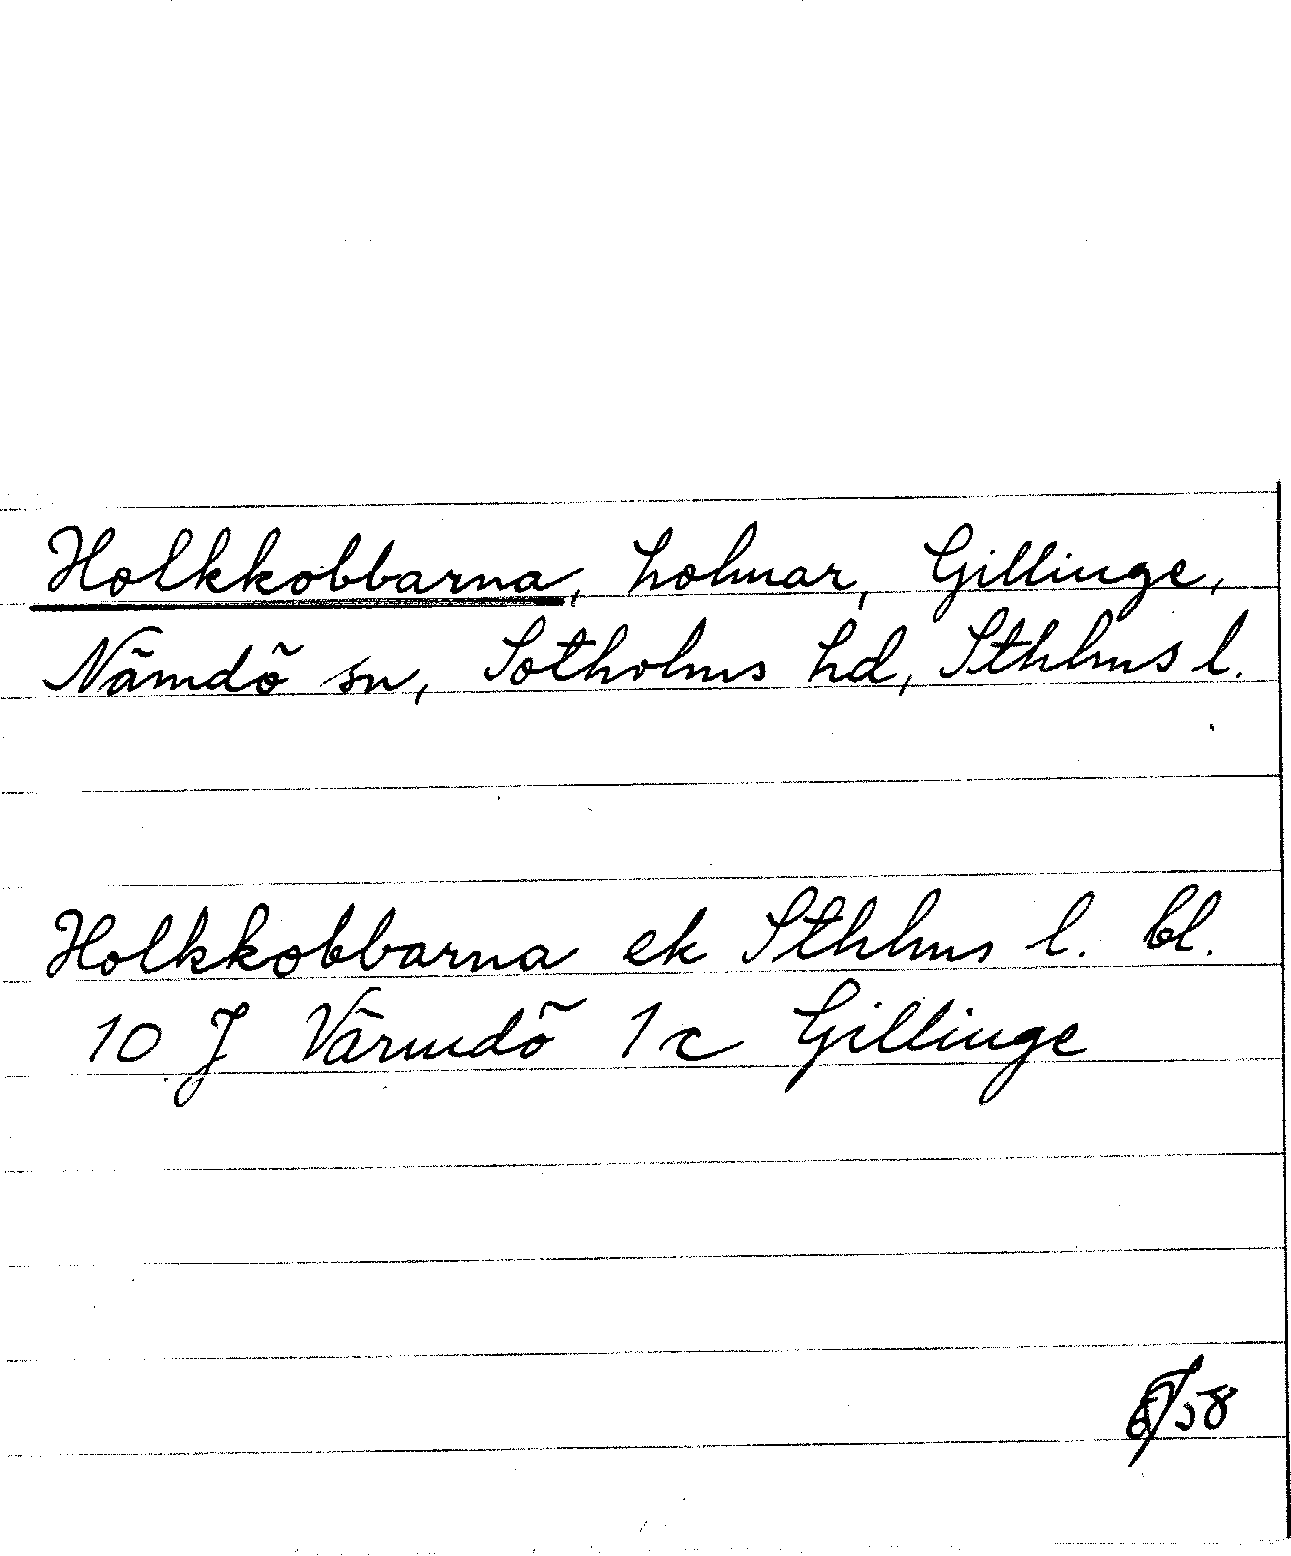 Holkkobbarna, holmar, Gillinge,
Nämdö sn, Sotholms hd, Sthlms l.
Holkkobbarna ek Sthlms l. bl.
10 J Värmdö 1 c Gillinge
58